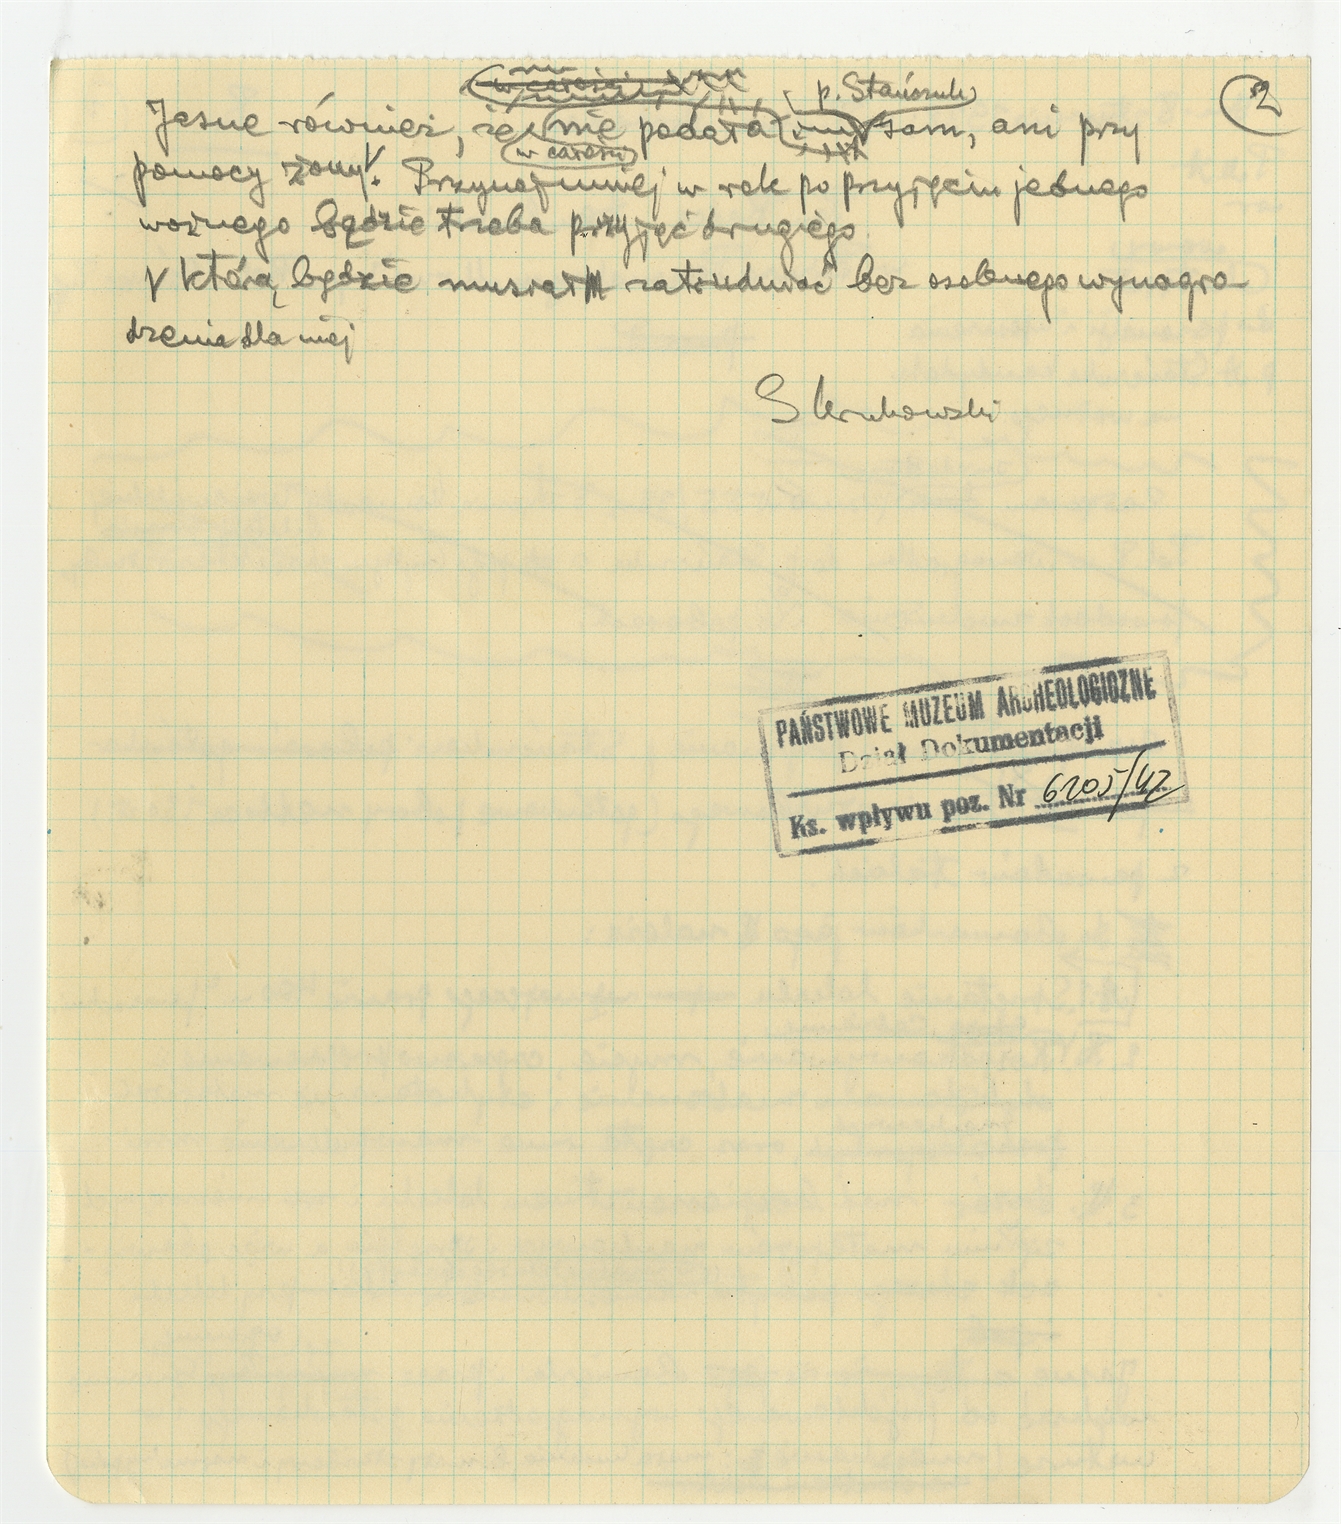 2
p. Stańczuk
Jasne również, że nie podoła sam, ani przy
w całości
pomocy żony V. Przynajmniej w rok po przyjęciu jednego
woźnego będzie trzeba przyjąć drugiego
V którą będzie musiał zatrudniać bez osobnego wynagro
dzenia dla niej
S Krukowski
PAŃSTWOWE MUZEUM ARCHEOLOGICZNE
Dział Dokumentacji
Ks. wpływu poz. Nr 6205/42